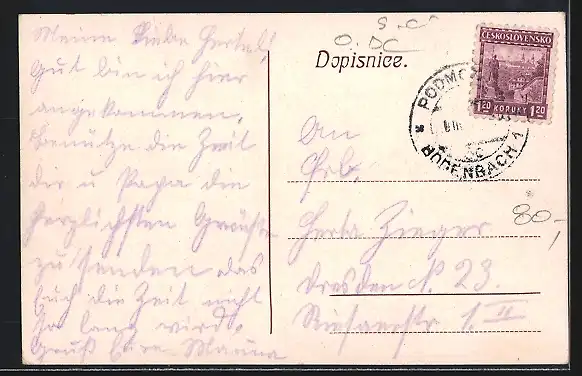 Meine Liebe Hertel!
Gut bin ich hier
angekommen.
Benütze die Zeit
dir u Papa die
herzlichsten Grüße
zu senden das
Euch die Zeit nicht
so lang wird.
Gruß Eure Mama
S.C
O.DC
Dopisnice.
ČESKOSLOVENSKO
1.20 KORUNY 1.20
PODMO
BODENBACH 1
An
Frl.
Herta Zieger
80,-
Dresden N. 23.
Riesaerstr 1. II